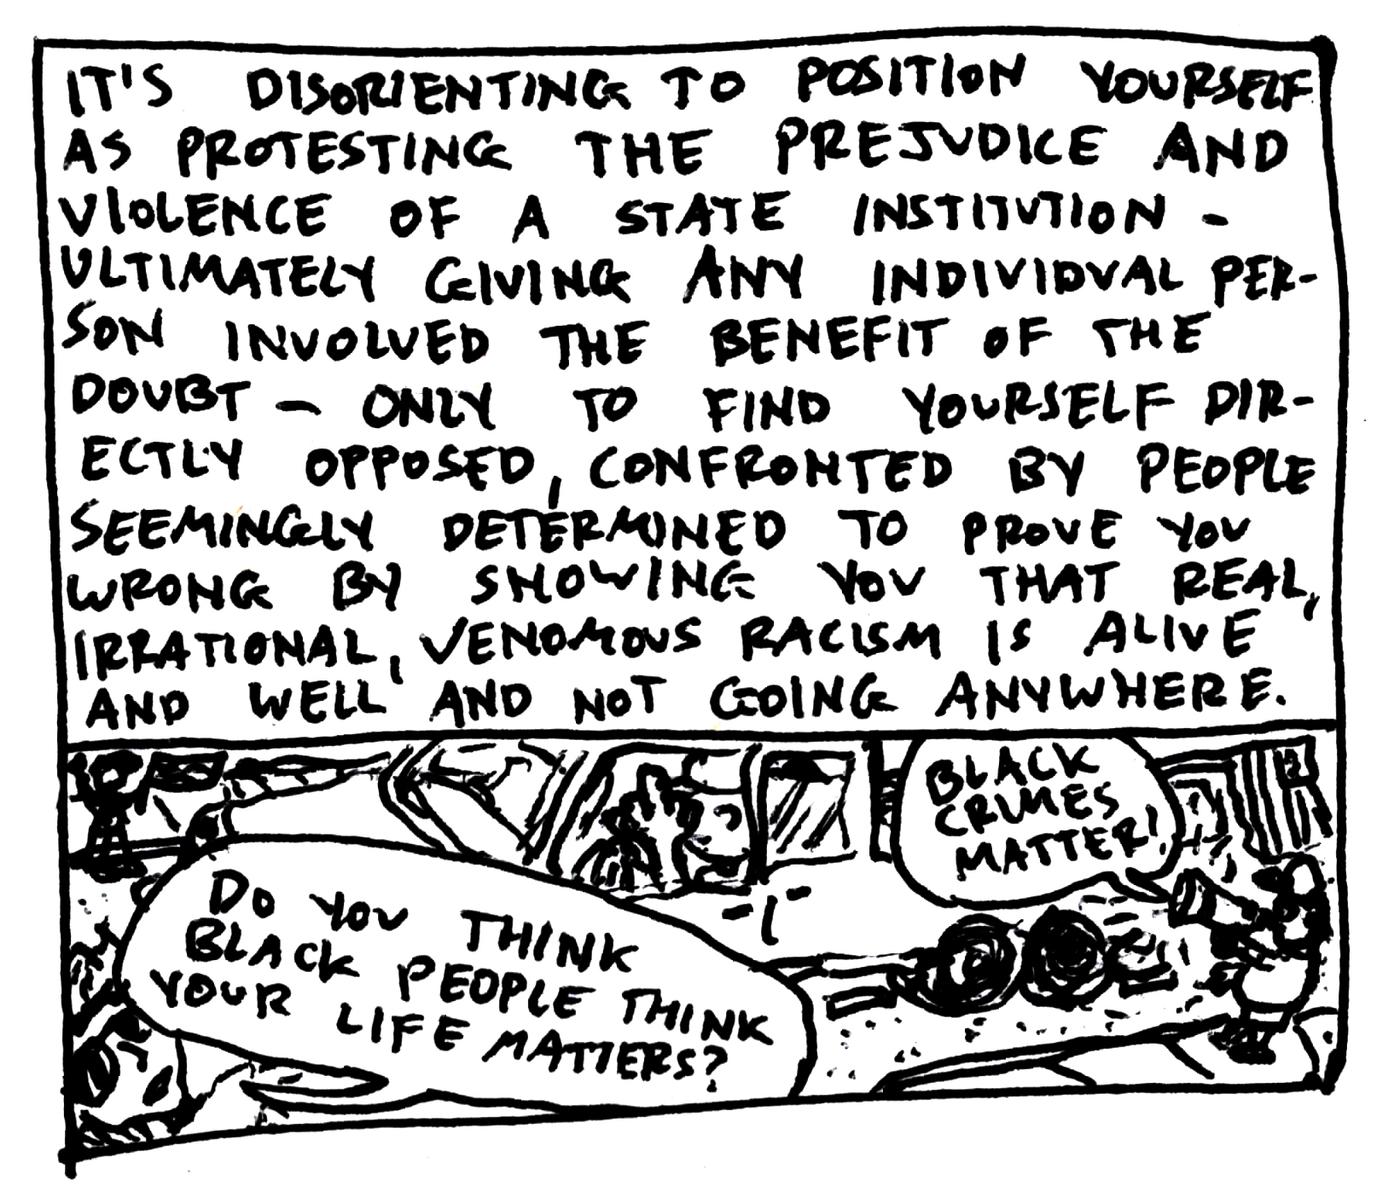 IT'S DISORIENTING TO POSITION YOURSELF
AS PROTESTING THE PREJUDICE AND
VIOLENCE OF A STATE INSTITUTION -
ULTIMATELY GIVING ANY INDIVIDUAL PER-
SON INVOLVED THE BENEFIT OF THE
DOUBT - ONLY TO FIND YOURSELF DIR-
ECTLY OPPOSED, CONFRONTED BY PEOPLE
SEEMINGLY DETERMINED TO PROVE YOU
WRONG BY SHOWING YOU THAT REAL,
IRRATIONAL, VENOMOUS RACISM IS ALIVE
AND WELL AND NOT GOING ANYWHERE.
BLACK
CRIMES
MATTER!
DO YOU THINK
BLACK PEOPLE THINK
YOUR LIFE MATTERS?